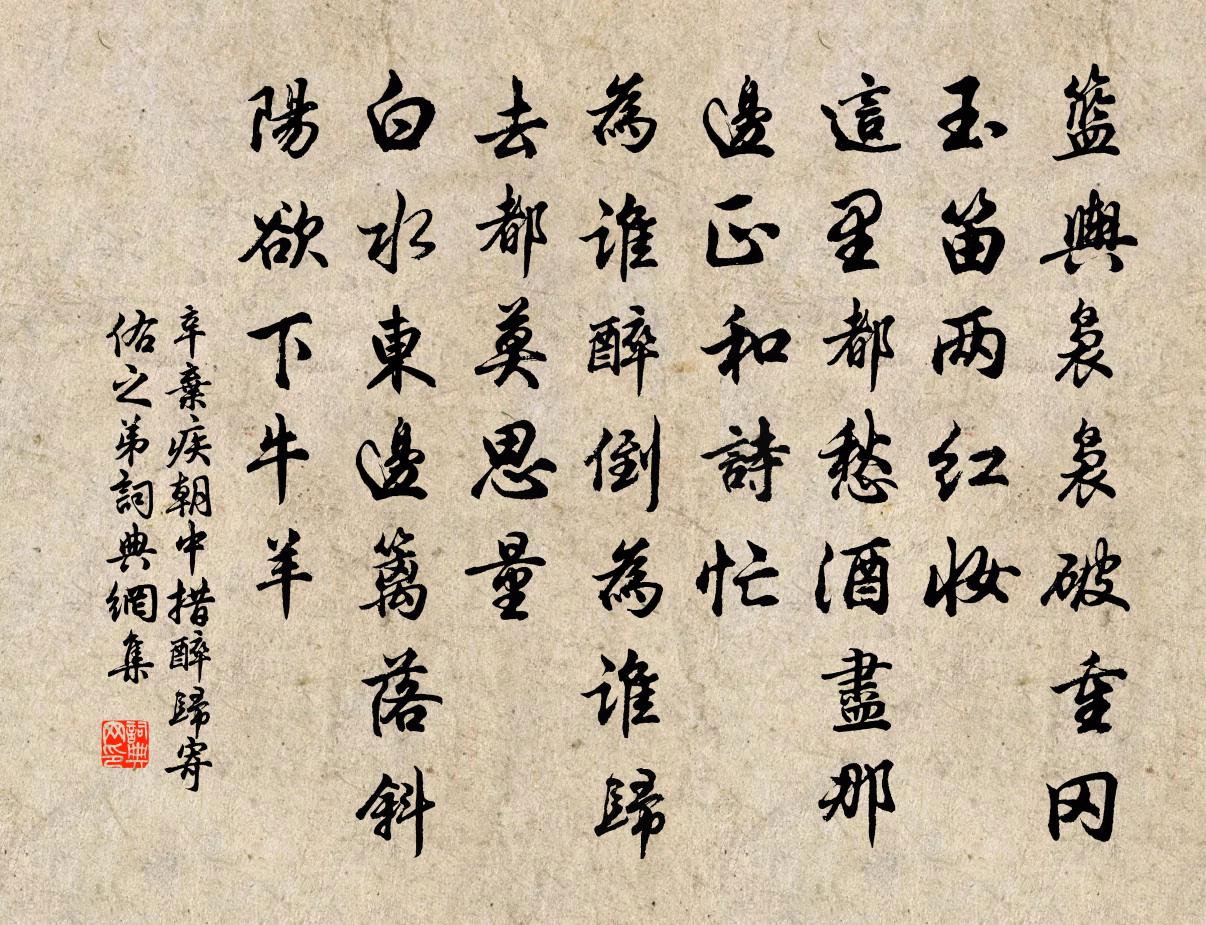 籃輿裊裊破重冈
玉笛两红妆
這里都愁酒盡那
邊正和詩忙
為誰醉倒為誰歸
去都莫思量
白水東邊籬落斜
陽欲下牛羊
辛棄疾朝中措醉歸寄
佑之弟詞典網集
詞典
网印